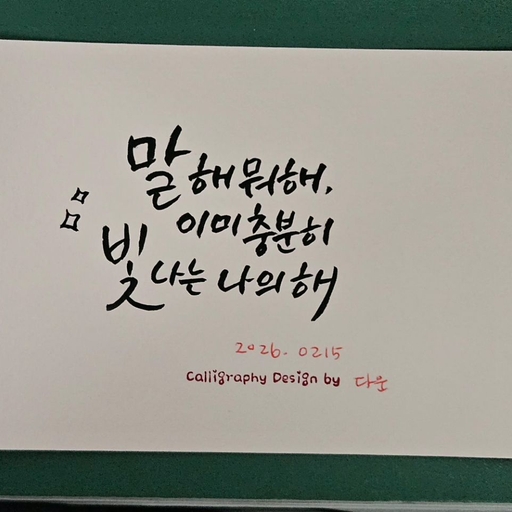 말해뭐해,
이미충분히
빛나는 나의해
2026. 0215
Calligraphy Design by 다운